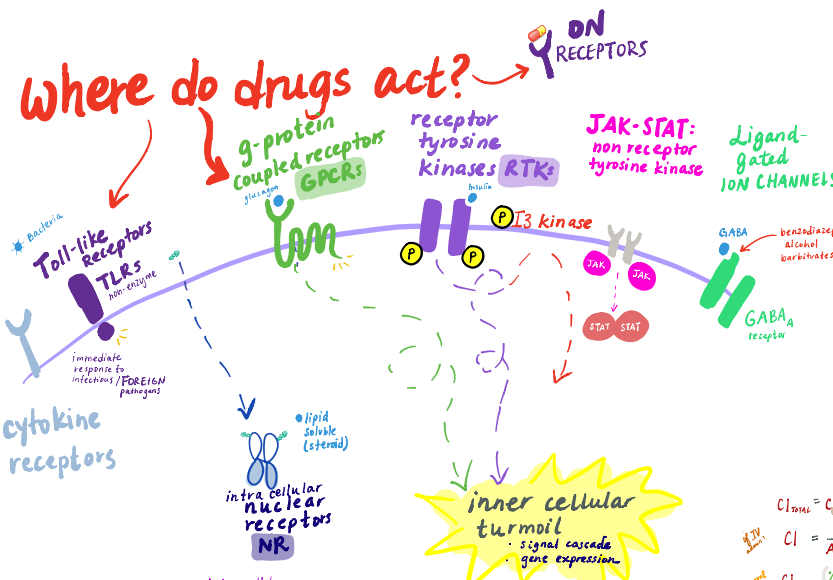 Where do drugs act?
ON
RECEPTORS
g-protein
coupled receptors
GPCRs
glucagon
receptor
tyrosine
kinases RTKs
insulin
JAK-STAT:
non receptor
tyrosine kinase
Ligand-
gated
ION CHANNELS
Bacteria
Toll-like
Receptors
TLRs
non-enzyme
immediate
response to
infectious/FOREIGN
pathogens
P I3 kinase
P
P
JAK
JAK
STAT STAT
GABA
benzodiazep
alcohol
barbiturates
GABA A
receptor
cytokine
receptors
lipid
soluble
(steroid)
intra cellular
nuclear
receptors
NR
inner cellular
turmoil
· signal cascade
· gene expression
Cl TOTAL = C
if IV
admin:
Cl =